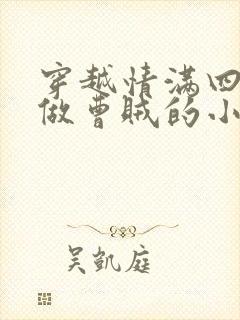 穿越情满四
做曹贼的小
吴凯庭